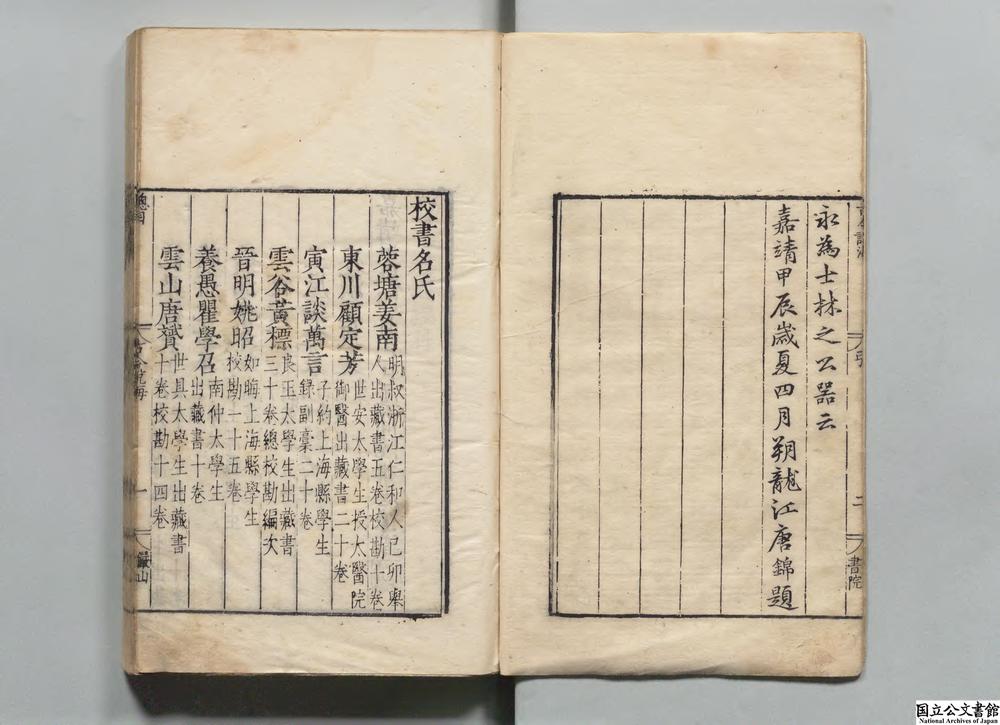 永為士林之公器云
嘉靖甲辰歲夏四月朔龍江唐錦題
引
二
書院
校書名氏
蓉塘姜南
明叔浙江仁和人己卯舉
人出藏書五卷校勘十卷
東川顧定芳
世安太學生授太醫院
御醫出藏書二十卷
寅江談萬言
子約上海縣學生
錄副稾二十卷
雲谷黃標
良玉太學生出藏書
三十卷總校勘編次
晉明姚昭
如晦上海縣學生
校勘一十五卷
養愚瞿學召
南仲太學生
出藏書十卷
雲山唐贇
世具太學生出藏書
十卷校勘十四卷
總目
一
儼山
国立公文書館
National Archives of Japan